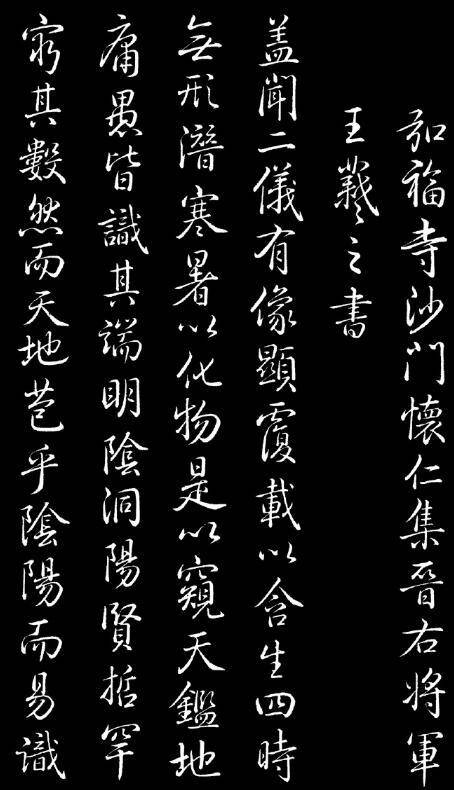 弘福寺沙門懷仁集晉右將軍
王羲之書
盖聞二儀有像顯覆載以含生四時
無形潛寒暑以化物是以窺天鑑地
庸愚皆識其端明陰洞陽賢哲罕
窮其數然而天地苞乎陰陽而易識